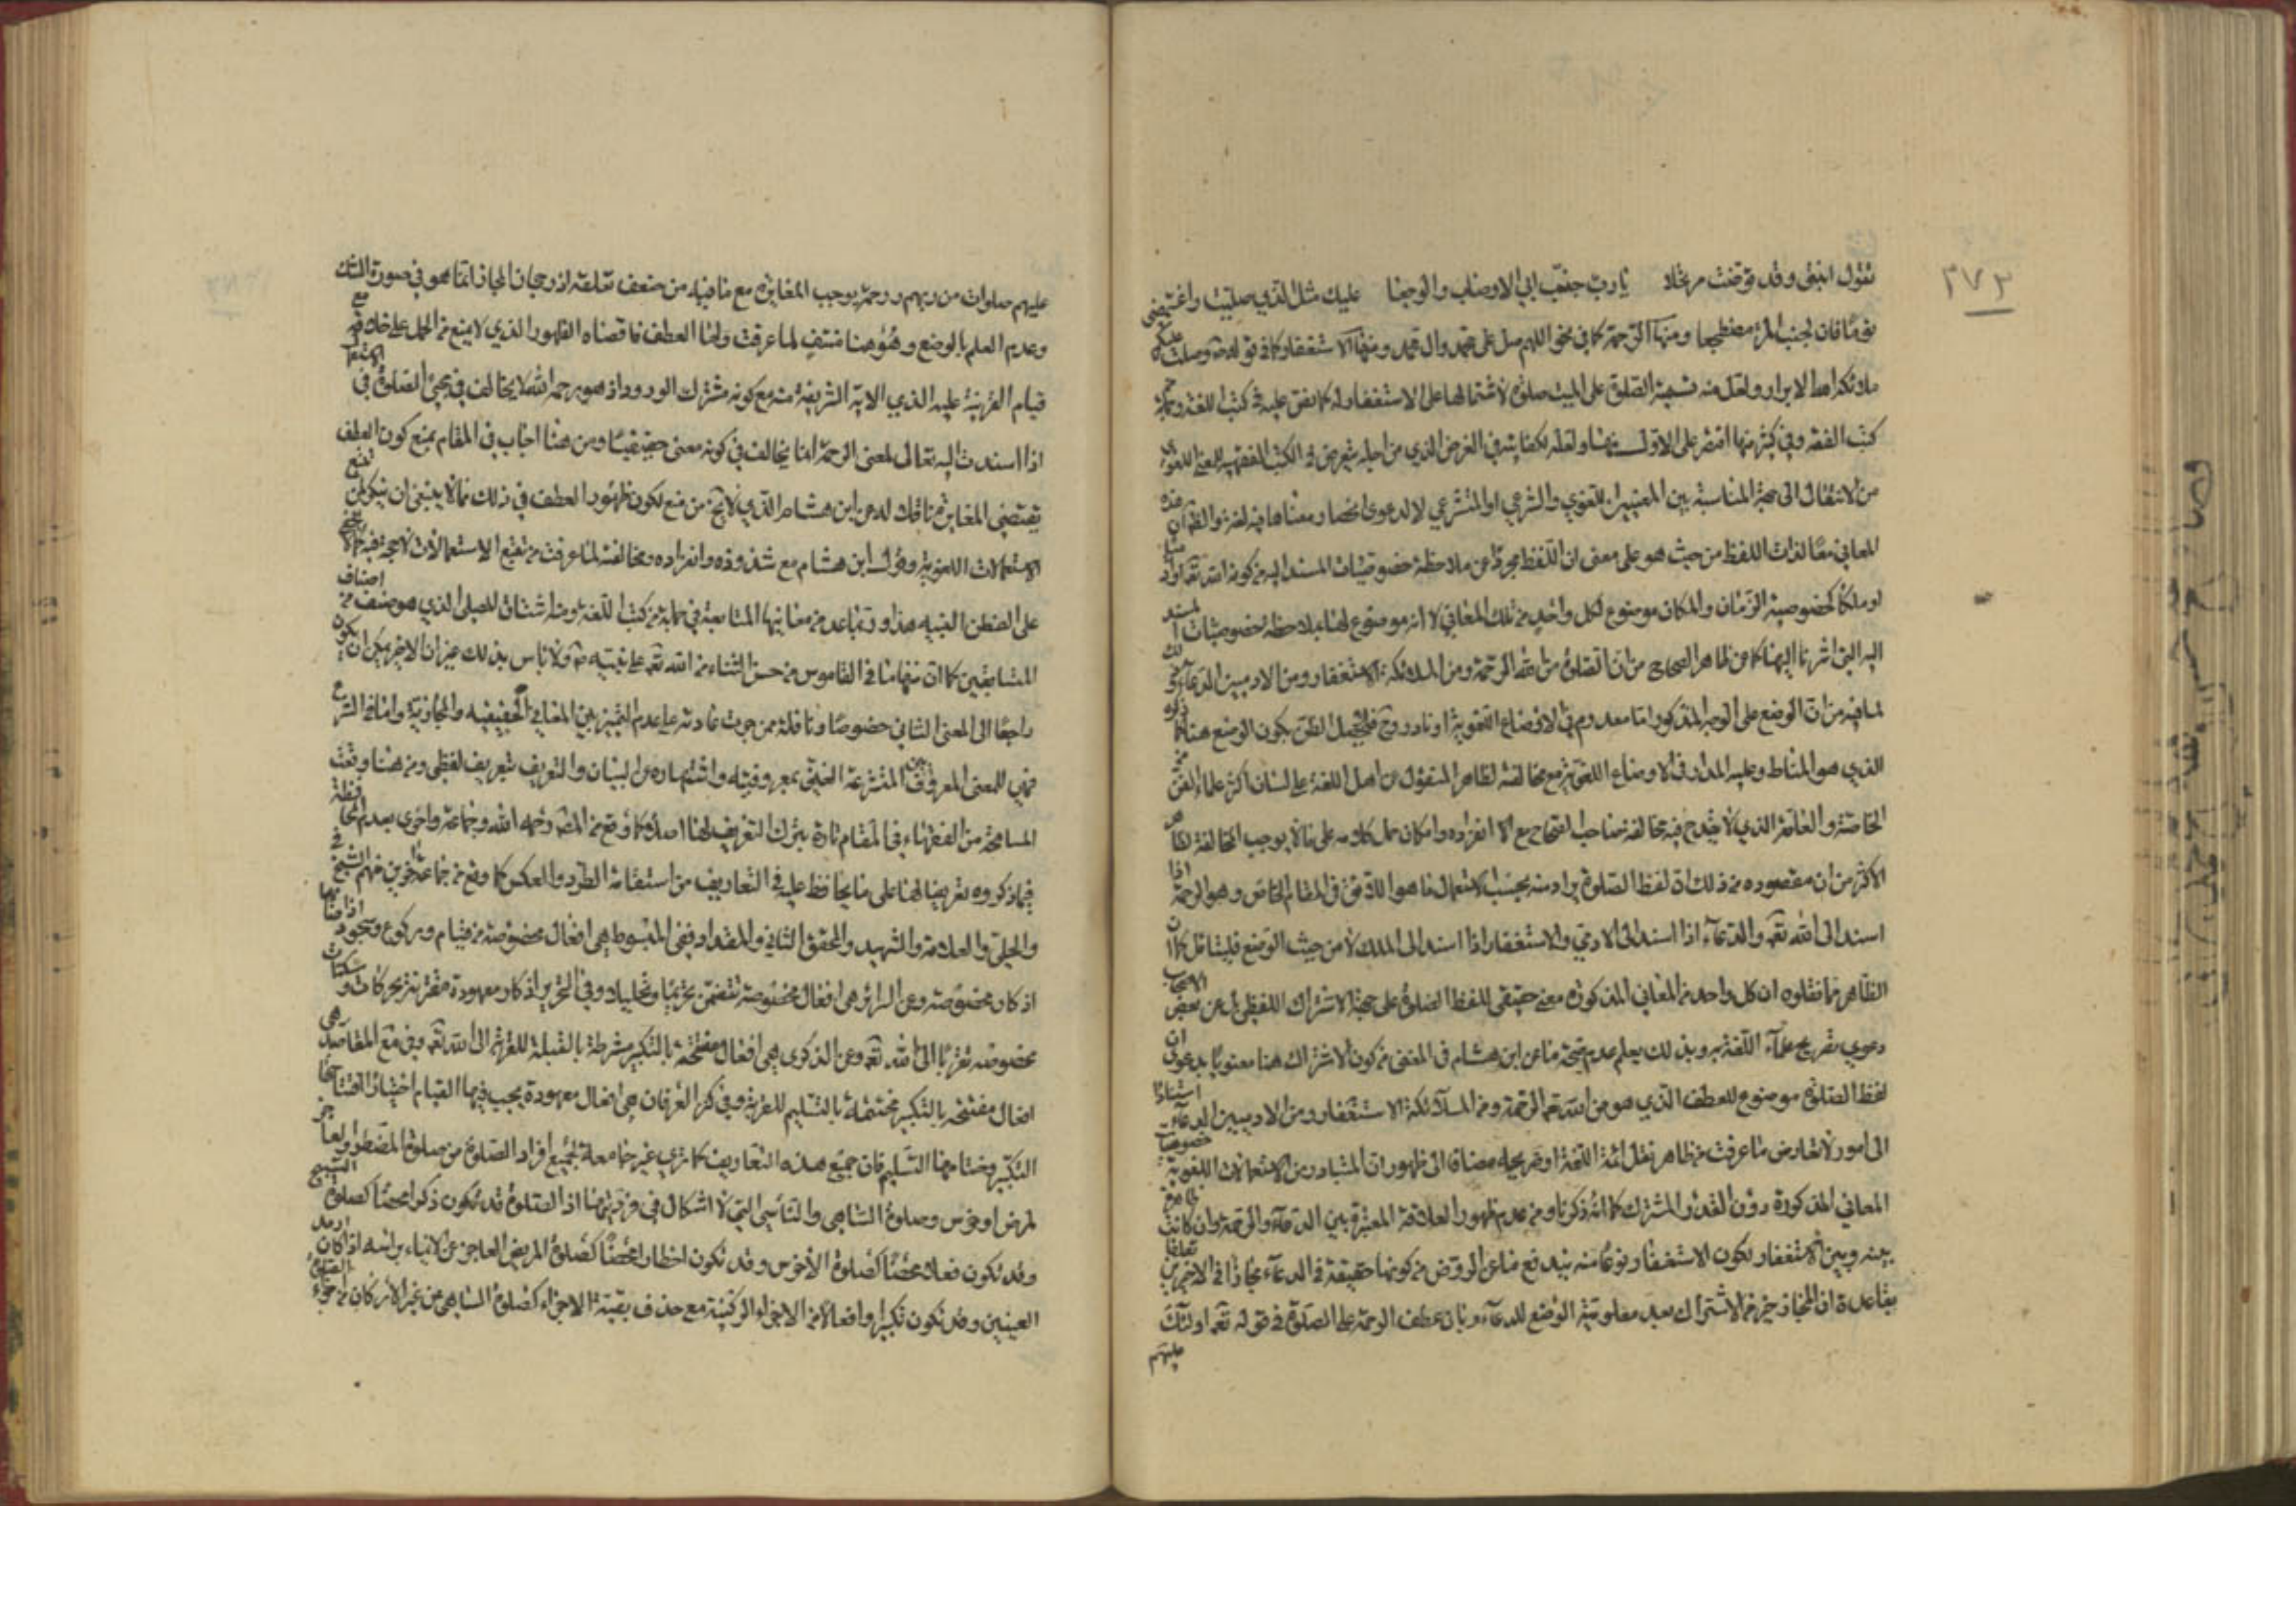 ٢٧٣
تقول ابنتي وقد قربت مرتحلا يا رب جنب ابي الاوصاب والوجعا عليك مثل الذي صليت واغتمضي
نوما فان لجنب المرء مضطجعا ومنها الرحمة كما في نحو اللهم صل على محمد وال محمد ومنها الاستغفار كما في قوله وصلت عليكم
ملائكة الابرار ولعل منه تسمية الصلوة على الميت صلوة لاشتمالها على الاستغفار له كما نص عليه في كتب اللغة وجملة
كتب الفقه وفي كثير منها اقتصر على الاول منها ولعله لكفايته في الغرض الذي من اجله تعرض في الكتب الفقهية للمعنى اللغوي
من الانتقال الى صحة المناسبة بين المعنيين اللغوي والشرعي او المتشرعي لا لدعوى انحصار معناها فيه لغة والظ ان هذه
المعاني معان لذات اللفظ من حيث هو على معنى ان اللفظ مجردا عن ملاحظة خصوصيات المسند اليه من كونه الله تعالى او
او ملكا كخصوصية الزمان والمكان موضوع لكل واحد من تلك المعاني لا انه موضوع لها بملاحظة خصوصيات المسند
اليه التي اشرنا اليها كما عن ظاهر الصحاح من ان الصلوة من الله الرحمة ومن الملائكة الاستغفار ومن الادميين الدعاء
لما فيه من ان الوضع على الوجه المذكور اما معدوم في الاوضاع اللغوية او نادر وح فلا يحصل الظن بكون الوضع هنا كما ذكره
الذي هو المناط وعليه المدار في الاوضاع اللغوية مع مخالفته لظاهر المنقول عن اهل اللغة على لسان اكثر علماء الفن من
الخاصة والعامة الذي لا يقدح فيه مخالفة صاحب الصحاح مع انفراده وامكان حمل كلامه على ما لا يوجب المخالفة لظاهر
الاكثر من ان مقصوده من ذلك ان لفظ الصلوة يراد منه بحسب الاستعمال ما هو اللائق في المقام الخاص وهو الرحمة اذا
اسند الى الله تعالى والدعاء اذا اسند الى الادمي والاستغفار اذا اسند الى الملك لا من حيث الوضع فليتامل
الظاهر مما نقلوه ان كل واحد من المعاني المذكورة معنى حقيقي للفظ الصلوة على جهة الاشتراك اللفظي بل عن بعض الاصحاب
دعوى تصريح علماء اللغة به وبذلك يعلم عدم صحة ما عن ابن هشام في المغني من كون الاشتراك هنا معنويا بدعوى ان
لفظ الصلوة موضوع للعطف الذي هو من الله تعالى الرحمة ومن الملائكة الاستغفار ومن الادميين الدعاء استنادا
الى امور لا تعارض ما عرفت من ظاهر نقل ائمة اللغة او صريحه مضافا الى ظهور ان المتبادر من الاستعمالات اللغوية خصوصيات
المعاني المذكورة دون القدر المشترك كما انه ذكرنا ومن عدم ظهور العلاقة المعتبرة بين الدعاء والرحمة وان كانت
بينه وبين الاستغفار لكون الاستغفار نوعا منه يندفع ما عن الروض من كونها حقيقة في الدعاء مجازا في الاخيرين تعلقا
بقاعدة ان المجاز خير من الاشتراك بعد معلومية الوضع للدعاء وبان عطف الرحمة على الصلوة في قوله تعالى اولئك
عليهم
عليهم صلوات من ربهم ورحمة يوجب المغايرة مع ما فيه من ضعف تعلقه اذ رجحان المجاز انما هو في صورة الشك
وعدم العلم بالوضع وهو هنا منتف لما عرفت واما العطف فاقصاه الظهور الذي لا يمنع من الحمل على خلافه مع
قيام القرينة عليه الذي الاية الشريفة منه مع كونه مشترك الورود اذ هو رحمه الله لا يخالف في مجيء الصلوة في الاستعمال
اذا اسندت اليه تعالى لمعنى الرحمة انما يخالف في كونه معنى حقيقيا ومن هنا اجاب في المقام بمنع كون العطف
يقتضي المغايرة ناقلا له عن ابن هشام الذي لا يخ من منع لكون ظهور العطف في ذلك مما لا ينبغي ان ينكر لمن تتبع
الاستعمالات اللغوية وقول ابن هشام مع شذوذه وانفراده ومخالفته لما عرفت من تتبع الاستعمالات لا حجة فيه
على الفطن النبيه هذا وتباعد من معانيها المتابعة في جملة من كتب اللغة ومنه اشتقاق المصلي الذي هو صنف من اصناف
المتسابقين كما ان منها ما في القاموس من حسن الثناء من الله تعالى على نبيه ولا باس بذلك غير ان الاخير يمكن ان يكون
راجعا الى المعنى الثاني خصوصا وناقله ممن جرت عادته على عدم التمييز بين المعاني الحقيقية والمجازية واما في الشرع
فهي للمعنى المعروف بين المتشرعة الغني بمعروفيته واشتهاره عن البيان والتعريف تعريف لفظي ومن هنا وقعت
المسامحة من الفقهاء في المقام تارة بترك التعريف لها اصلا كما وقع من المص رحمه الله وجماعة واخرى بعدم المحافظة
فيما ذكروه تعريفا لها على ما يحافظ عليه في التعاريف من استقامة الطرد والعكس كما وقع من جماعة اخرين منهم الشيخ في
والحلي والعلامة والشهيد والمحقق الثاني والمقداد ففي المبسوط هي افعال مخصوصة من قيام وركوع وسجود
اذكار مخصوصة وعن السرائر هي افعال مخصوصة تتضمن تحريما وتحليلا وفي التحرير اذكار معهودة مقترنة بحركات وسكنات
مخصوصة تقربا الى الله تعالى وعن الذكرى هي افعال مفتتحة بالتكبير مشترطة بالقبلة للقربة الى الله تعالى وفي جامع المقاصد هي
افعال مفتتحة بالتكبير مختتمة بالتسليم للقربة وفي كنز العرفان هي افعال معهودة يجب فيها القيام اختيارا افتتاحها
التكبير وختامها التسليم فان جميع هذه التعاريف كما ترى غير جامعة لجميع افراد الصلوة من صلوة المضطر
لمرض او خرس وصلوة الساهي والناسي التي لا اشكال في فرديتها اذ الصلوة قد تكون ذكرا محضا كصلوة التسبيح
وقد تكون فعلا محضا كصلوة الاخرس وقد تكون اخطارا محضا كصلوة المريض العاجز عن الايماء براسه اذا كان ارمد
العينين وقد تكون تكبيرا وافعالا من الاجزاء الركنية مع حذف بقية الاجزاء كصلوة الساهي عن غير الاركان من اجزاء الصلوة